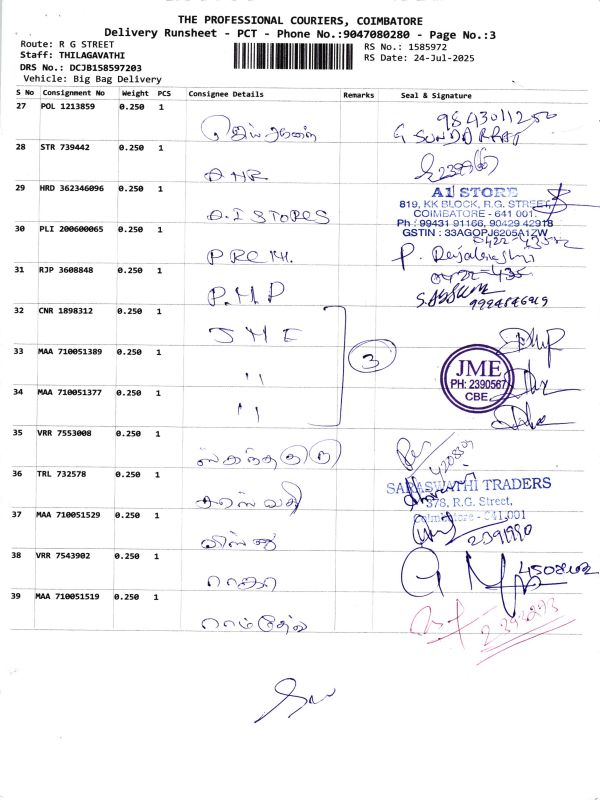 THE PROFESSIONAL COURIERS, COIMBATORE
Delivery Runsheet - PCT - Phone No.:9047080280 - Page No.:3
Route: R G STREET
RS No.: 1585972
Staff: THILAGAVATHI
RS Date: 24-Jul-2025
DRS No.: DCJB158597203
Vehicle: Big Bag Delivery
S No Consignment No Weight PCS Consignee Details Remarks Seal & Signature
27 POL 1213859 0.250 1
9843011250
G SUNDARRAJ
28 STR 739442 0.250 1
29 HRD 362346096 0.250 1
A.I STORES
A1 STORE
819, KK BLOCK, R.G. STREET,
COIMBATORE - 641 001.
Ph : 99431 91166, 90429 42918
GSTIN : 33AGOPJ6205A1ZW
30 PLI 200600065 0.250 1
PREM.
P. Rajalakshmi
31 RJP 3608848 0.250 1
P.M.P
32 CNR 1898312 0.250 1
JME
33 MAA 710051389 0.250 1
"
3
JME
PH: 2390567
CBE
34 MAA 710051377 0.250 1
"
35 VRR 7553008 0.250 1
ஸ்கந்தகுரு
36 TRL 732578 0.250 1
SARASWATHI TRADERS
378, R.G. Street,
Coimbatore - 641 001
37 MAA 710051529 0.250 1
2391990
38 VRR 7543902 0.250 1
ராகா
39 MAA 710051519 0.250 1
ராம்தேவ்